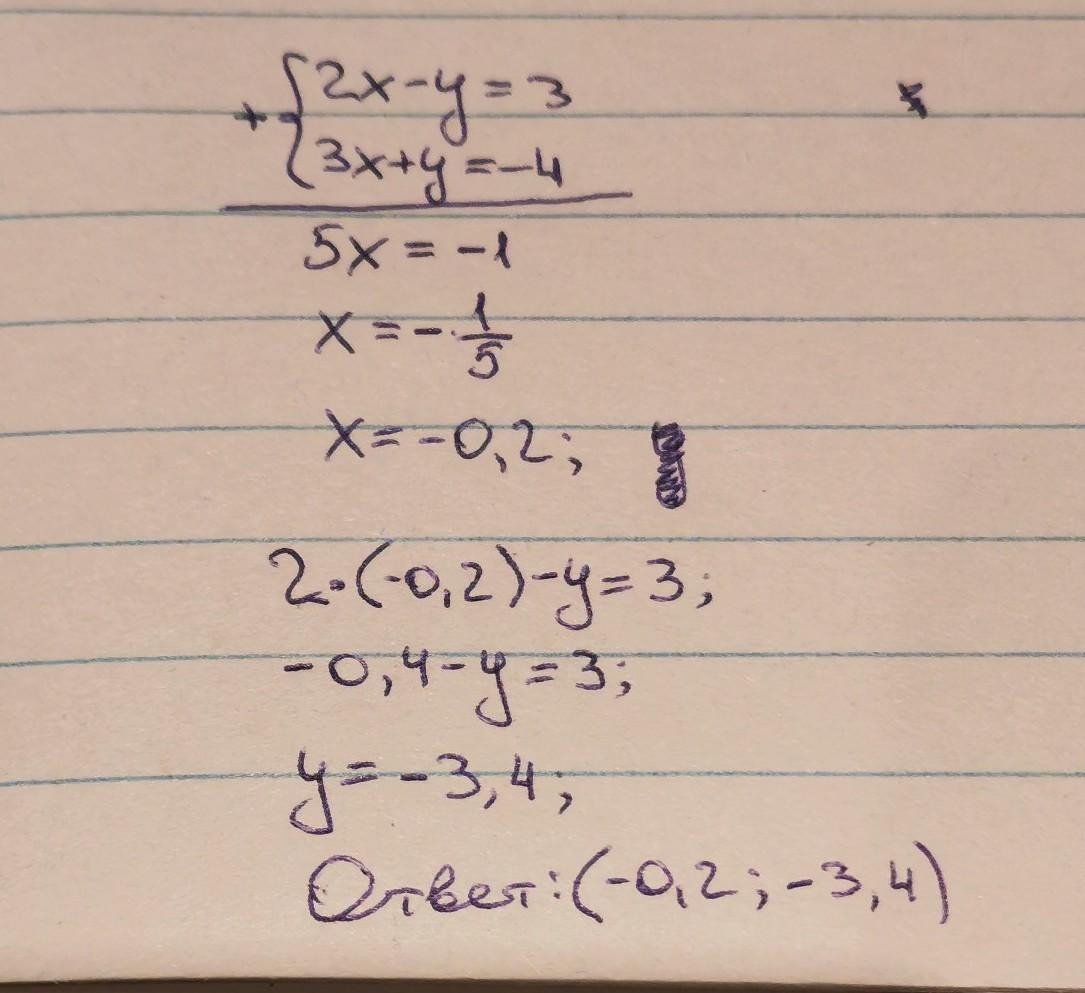 + {2x-y=3
3x+y=-4
5x=-1
x=-1/5
x=-0,2;
2·(-0,2)-y=3;
-0,4-y=3;
y=-3,4;
Ответ:(-0,2;-3,4)